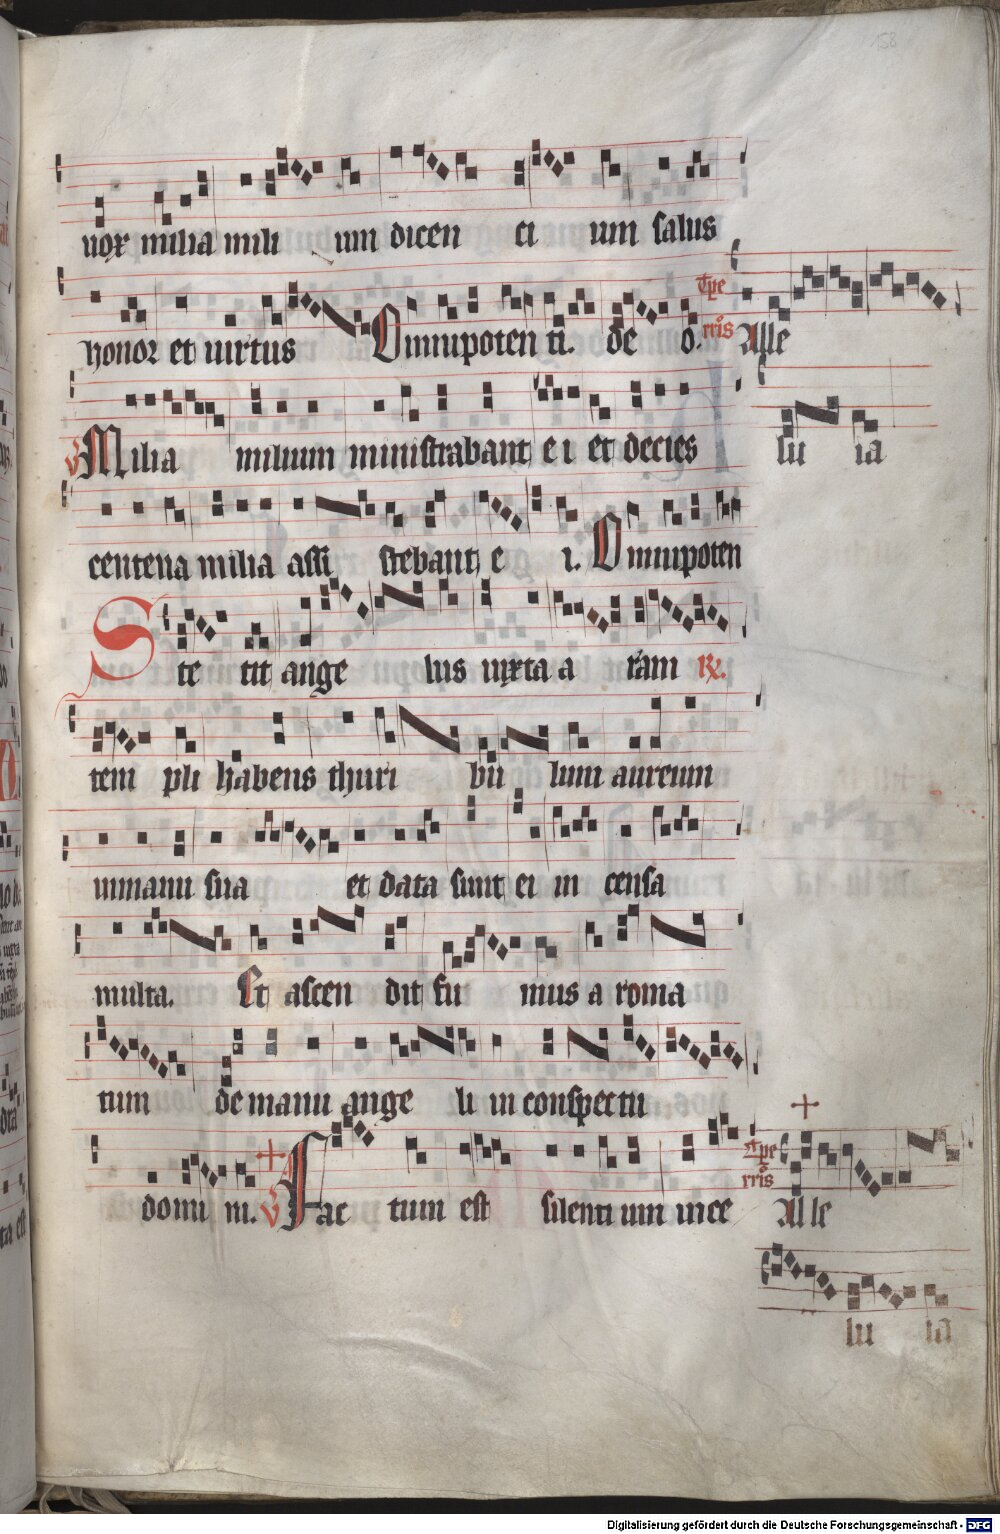 158
uox milia mili um dicen ci um salus
honor et uirtus Omnipoten ti. de o.
Alle
Milia milium ministrabant e i et decies
lu ia
centena milia assi stebant e i. Omnipoten
Ste tit ange lus iuxta a ram
tem pli habens thuri bu lum aureum
inmanu sua et data sunt ei in censa
multa. Et ascen dit fu mus a roma
tum de manu ange li in conspectu
domi ni. Fac tum est silenti um ince
Alle
lu ia
Digitalisierung gefördert durch die Deutsche Forschungsgemeinschaft - DFG